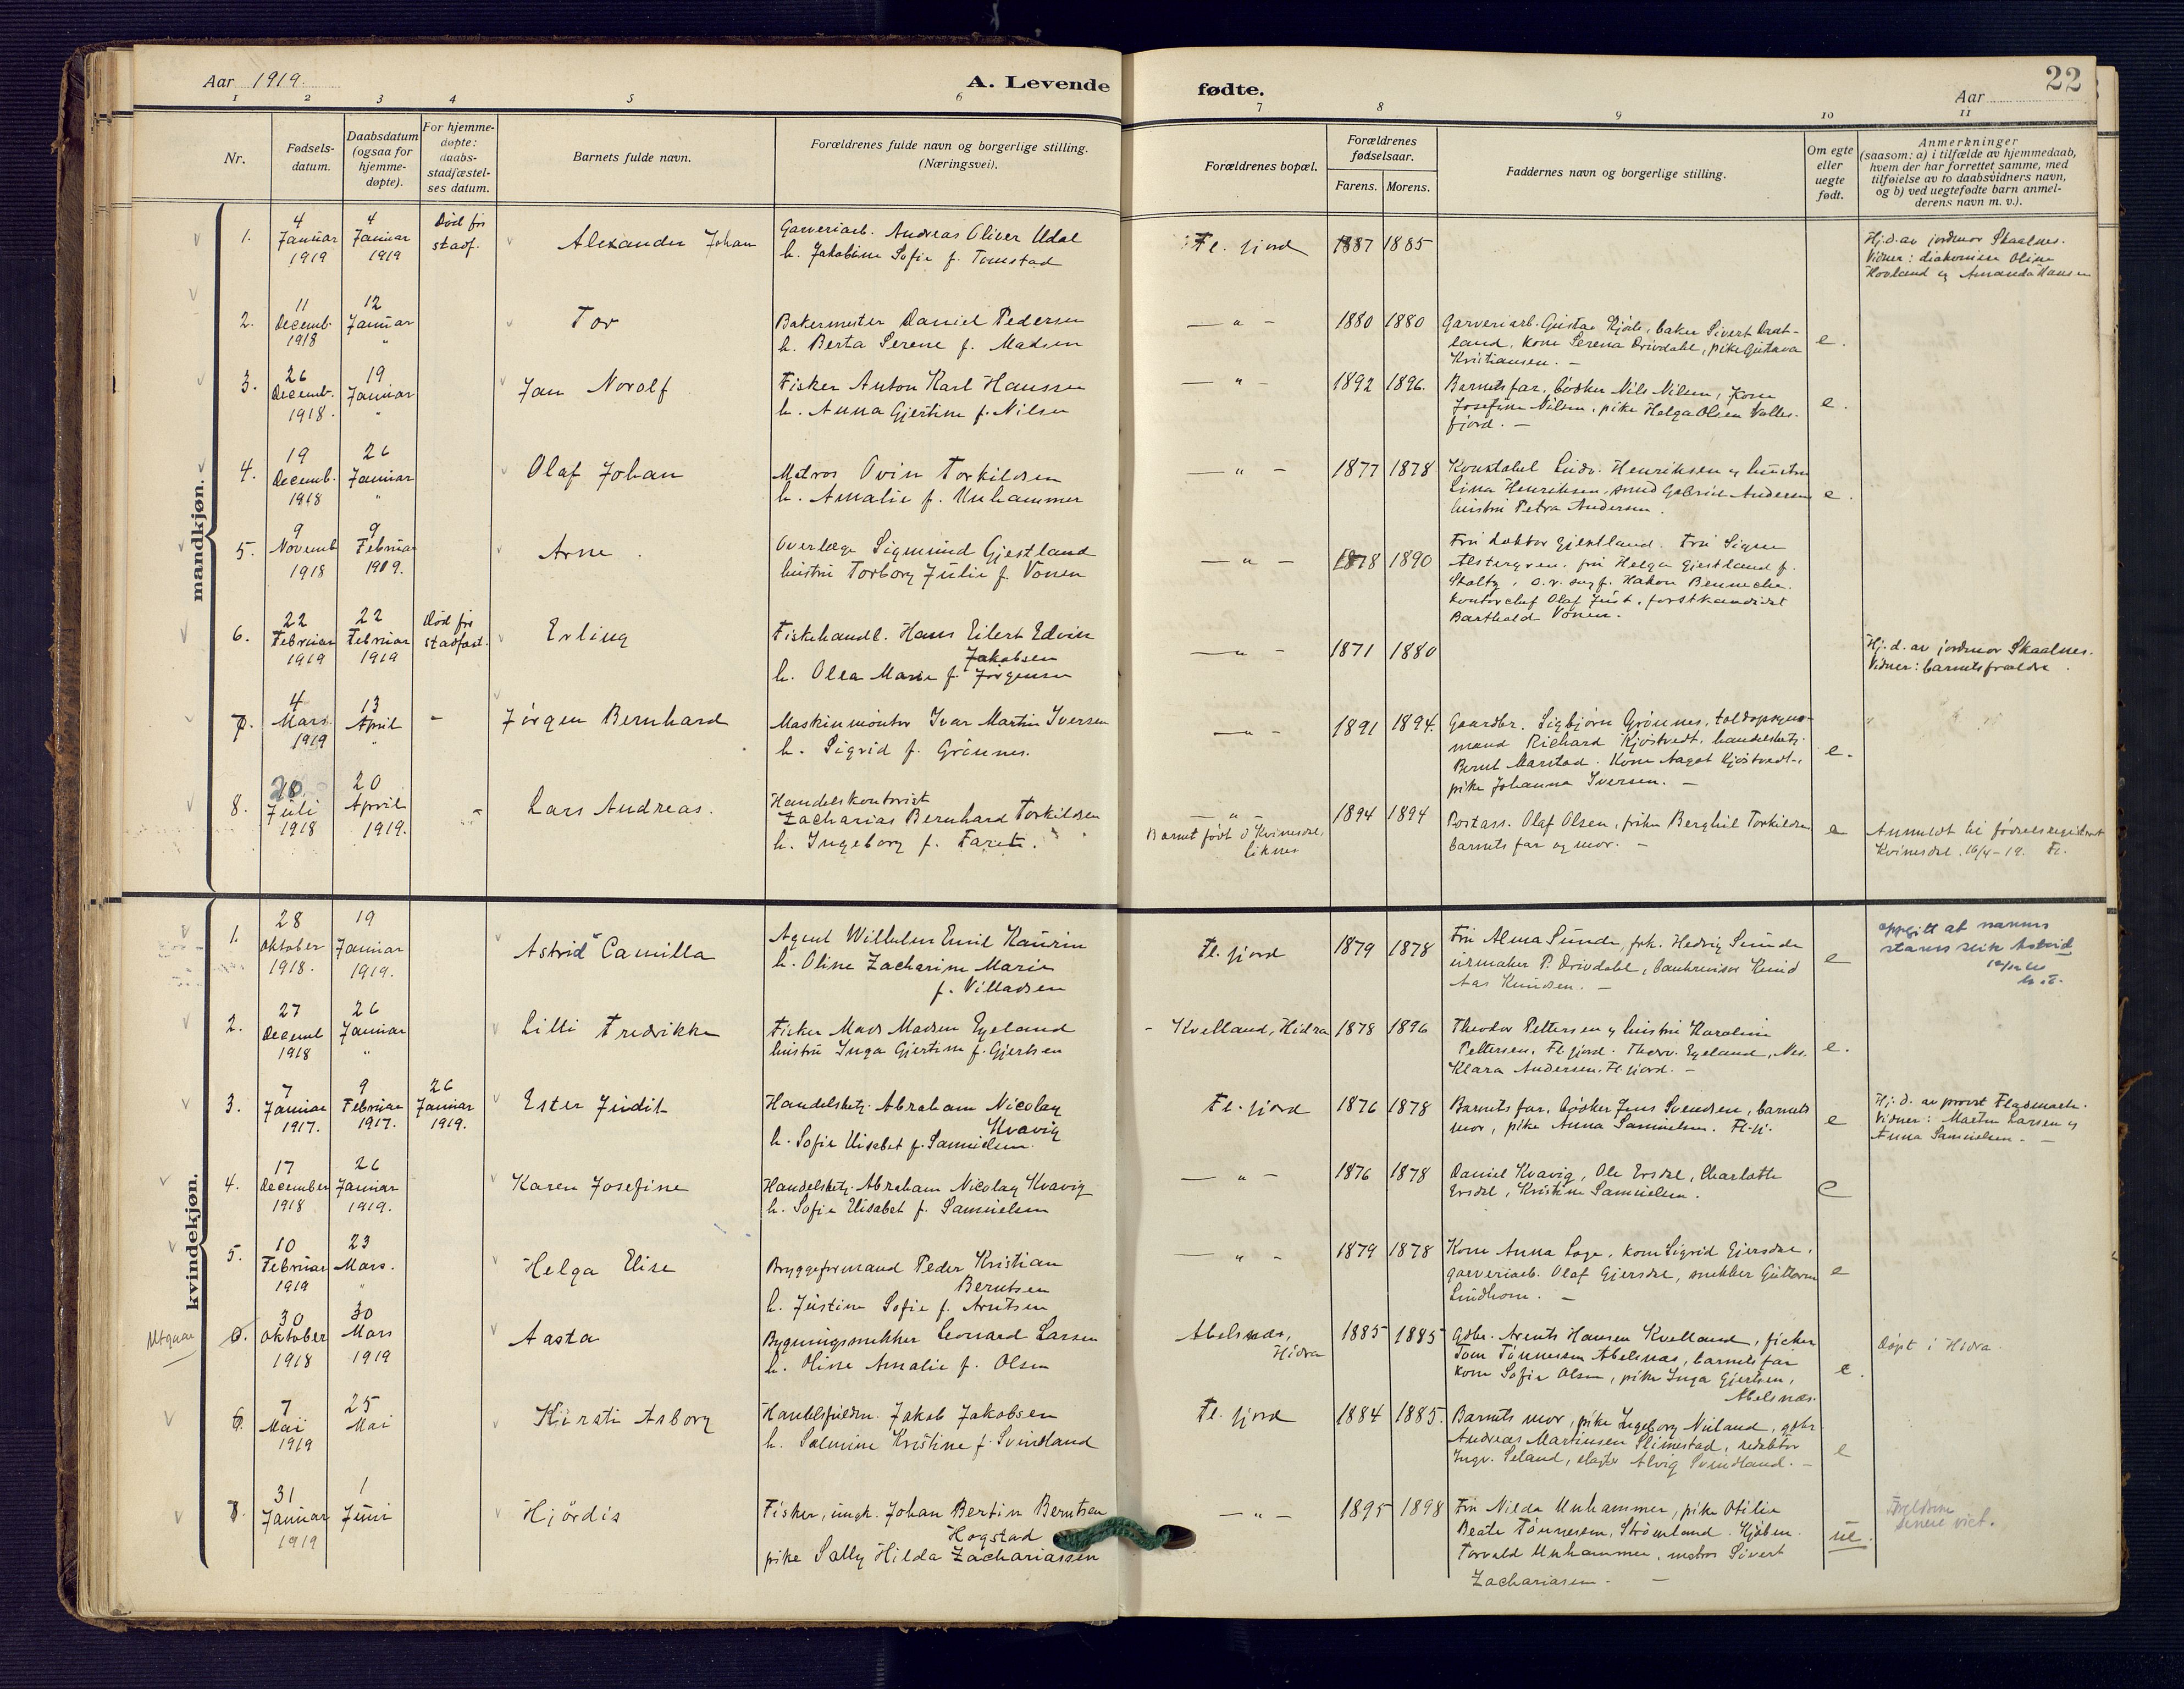 Aar 1919.
A. Levende
fødte.
Aar
22
1 2 3 4 5 6 7 8 9 10 11
Nr.
Fødsels-
datum.
Daabsdatum
(ogsaa for
hjemme-
døpte).
For hjemme-
døpte:
daabs-
stadfæstel-
ses datum.
Barnets fulde navn.
Forældrenes fulde navn og borgerlige stilling.
(Næringsvei).
Forældrenes bopæl.
Forældrenes
fødselsaar.
Farens. Morens.
Faddernes navn og borgerlige stilling.
Om egte
eller
uegte
født.
Anmerkninger
(saasom: a) i tilfælde av hjemmedaab,
hvem der har forrettet samme, med
tilføielse av to daabsvidners navn,
og b) ved uegtefødte barn anmel-
derens navn m. v.).
mandkjøn.
1.
4
Januar
1919
4
Januar
1919
Død før
stadf.
Alexander Johan
Garveriarb. Andreas Oliver Udal
h. Jakobine Sofie f. Tomstad
Fl. fjord
1887 1885
Hj.d. av jordmor Skaalnes.
Vidner: diakonisse Oline
Hovland og Amanda Hansen
2.
11
Decemb.
1918
12
Januar
"
Tor
Bakermester Daniel Pedersen
h. Berta Serene f. Madsen
— " —
1880 1880
Garveriarb. Gustav Kjøle, baker Sivert Daat-
land, kone Serena Drivdahl, pike Gustava
Kristiansen. —
e.
3.
26
Decemb.
1918.
19
Januar
"
Jan Norolf
Fisker Anton Karl Hanssen
h. Anna Gjertine f. Nilsen
— " —
1892 1896.
Barnets far, bødker Nils Nilsen, kone
Josefine Nilsen, pike Helga Olsen Valles-
fjord. —
e.
4.
19
Decemb.
1918
26
Januar
"
Olaf Johan
Matros Ovin Torkildsen
h. Amalie f. Unhammer
— " —
1877 1878
Konstabel Ludv. Henriksen og hustru
Lina Henriksen, smed Gabriel Andersen
hustru Petra Andersen.
e.
5.
9
Novemb
1918
9
Februar
1919.
Arne
Overlæge Sigmund Gjestland
hustru Torborg Julie f. Vonen
— " —
1878 1890
Fru doktor Gjestland. Fru Signe
fru Helga Gjestland f.
Stoltz, o.r. sagf. Hakon Benneche.
kontorchef Olaf Just, forstkandidat
Barthold Vonen.
6.
22
Februar
1919
22
Februar
1919
Død før
stadfæst.
Erling
Fiskehandl. Hans Eilert Edvin
Jakobsen
h. Olea Marie f. Jørgensen
— " —
1871 1880
Hj. d. av jordmor Skaalnes.
Vidner: barnets forældre.
7.
4
Mars.
1919
13
April
"
-
Jørgen Bernhard
Maskinmontør Ivar Martin Iversen
h. Sigrid f. Grönnes.
— " —
1891 1894.
Gaardbr. Sigbjørn Grønnes, toldopsyns-
mand Richard Kjøstvedt, handelsbetj.
Bernt Aarstad. Kone Aagot Kjøstvedt,
pike Johanna Iversen. —
e.
8.
20
Juli
1918
20
April
1919.
-
Lars Andreas.
Handelskontorist
Zacharias Bernhard Torkildsen
h. Ingeborg f. Faret.
— " —
Barnet født i Kvinesdal,
Liknes
1894 1894
Postass. Olaf Olsen, frøken Berghil Torkildsen
barnets far og mor. —
e
Anmeldt til fødselsregisteret
Kvinesdal. 16/4-19. Fl.
kvindekjøn.
1.
28
Oktober
1918.
19
Januar
1919.
Astrid Camilla
Agent Wilhelm Emil Kaurin
h. Oline Zacharine Marie
f. Villadsen
Fl. fjord
1879 1878
Fru Alma Sunde, frk. Hedvig Sunde
urmaker P. Drivdahl, bankrevisor Knud
Aas Knudsen. —
e
oppgitt at navnet
staves slik Astrid
2.
27
Decemb
1918
26
Januar
"
Lilli Fredrikke
Fisker Mads Madsen Egeland
hustru Inga Gjertine f. Gjertsen
- Kvelland, Hidra
1878 1896
Theodor Pettersen og hustru Karoline
Pettersen, Fl. fjord. Thorv. Egeland, Nes.
Klara Andersen, Fl fjord. —
e.
3.
7
Januar
1917.
9
Februar
1917.
26
Januar
1919.
Ester Judit
Handelsbetj. Abraham Nicolay
Kvavig
h. Sofie Elisabet f. Samuelsen.
Fl. fjord
1876 1878
Barnets far, bødker Jens Svendsen, barnets
mor, pike Anna Samuelsen. Fl. fj.
e
Hj. d. av provst Fladmark.
Vidner: Marthe Larsen og
Anna Samuelsen. —
4.
17
December
1918
26
Januar
1919.
Karen Josefine
Handelsbetj. Abraham Nicolay Kvavig
h. Sofie Elisabet f. Samuelsen
— " —
1876 1878
Daniel Kvavig, Ole Ersdal, Charlotte
Ersdal, Kristine Samuelsen.
e
5.
10
Februar
1919
23
Mars.
"
Helga Elise
Bryggeformand Peder Kristian
Berntsen
h. Justine Sofie f. Arntsen
— " —
1879 1878
Kone Anna Loge, kone Sigrid Gjersdal,
garveriarb. Olaf Gjersdal, snekker Guttorm
Lindhom. —
e
Utgaar
6.
30
Oktober
1918
30
Mars
1919
Aasta
Bygningssnekker Leonard Larsen
h. Oline Amalie f. Olsen
Abelsnæs,
Hidra
1885 1885
Gdbr. Arents Hansen Kvelland, fisker
Tom Tønnessen Abelsnæs, barnets far
kone Sofie Olsen, pike Inga Gjertsen,
Abelsnæs.
e.
Døpt i Hidra
6.
7
Mai
1919
25
Mai
Kirsti Asborg
Handelsfuldm. Jakob Jakobsen
h. Salmine Kristine f. Svindland
Fl. fjord
1884 1885.
Barnets mor, pike Ingeborg Nuland, gdbr.
Andreas Martinsen Slimestad, redaktør
Ingv. Seland, slagter Alvig Svindland. —
e
7.
31
Januar
1919
1
Juni
Hjördis
Fisker, ungk. Johan Bertin Berntsen
Hogstad
pike Sally Hilda Zachariassen
— " —
1895 1898
Fru Nilda Unhammer, pike Otilie
Beate Tønnessen, Strømland. Kjøbm.
Torvald Unhammer, matros Sivert
Zachariasen. —
ue.
Foreldrene
senere viet.